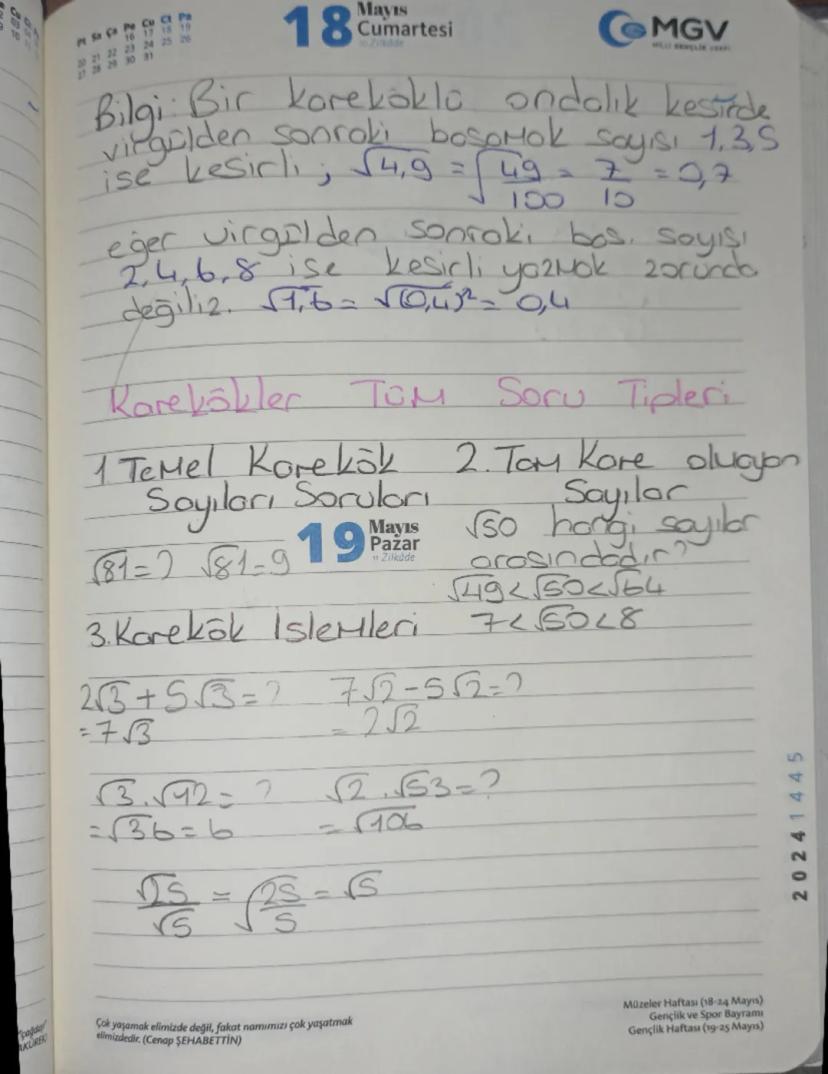 Pt Sa Ça Pe Cu Ct Pa
16 17 18 19
20 21 22 23 24 25 26
27 28 29 30 31
18 Mayıs
Cumartesi
10 Zilkâde
MGV
MİLLİ GENÇLİK VAKFI
Bilgi: Bir kareköklü ondalık kesirde
virgülden sonraki basamak sayısı 1,3,5
ise kesirli; √4,9 = √49/100 = 7/10 = 0,7
eğer virgülden sonraki bas. sayısı
2,4,6,8 ise kesirli yazmak zorunda
değiliz. √1,6 = √(0,4)² = 0,4
Karekökler Tüm Soru Tipleri
1 Temel Karekök
Sayıları Soruları
√81=? √81=9
2. Tam Kare olmayan
Sayılar
√50 hangi sayılar
arasındadır?
√49<√50<√64
7<√50<8
19 Mayıs
Pazar
11 Zilkâde
3. Karekök İşlemleri
2√3+5√3=? 7√2-5√2=?
=7√3 = 2√2
√3.√12=? √2.√53=?
=√36=6 =√106
√25/√5 = √25/5 = √5
2024 1445
Çok yaşamak elimizde değil, fakat namımızı çok yaşatmak
elimizdedir. (Cenap ŞEHABETTİN)
Müzeler Haftası (18-24 Mayıs)
Gençlik ve Spor Bayramı
Gençlik Haftası (19-25 Mayıs)